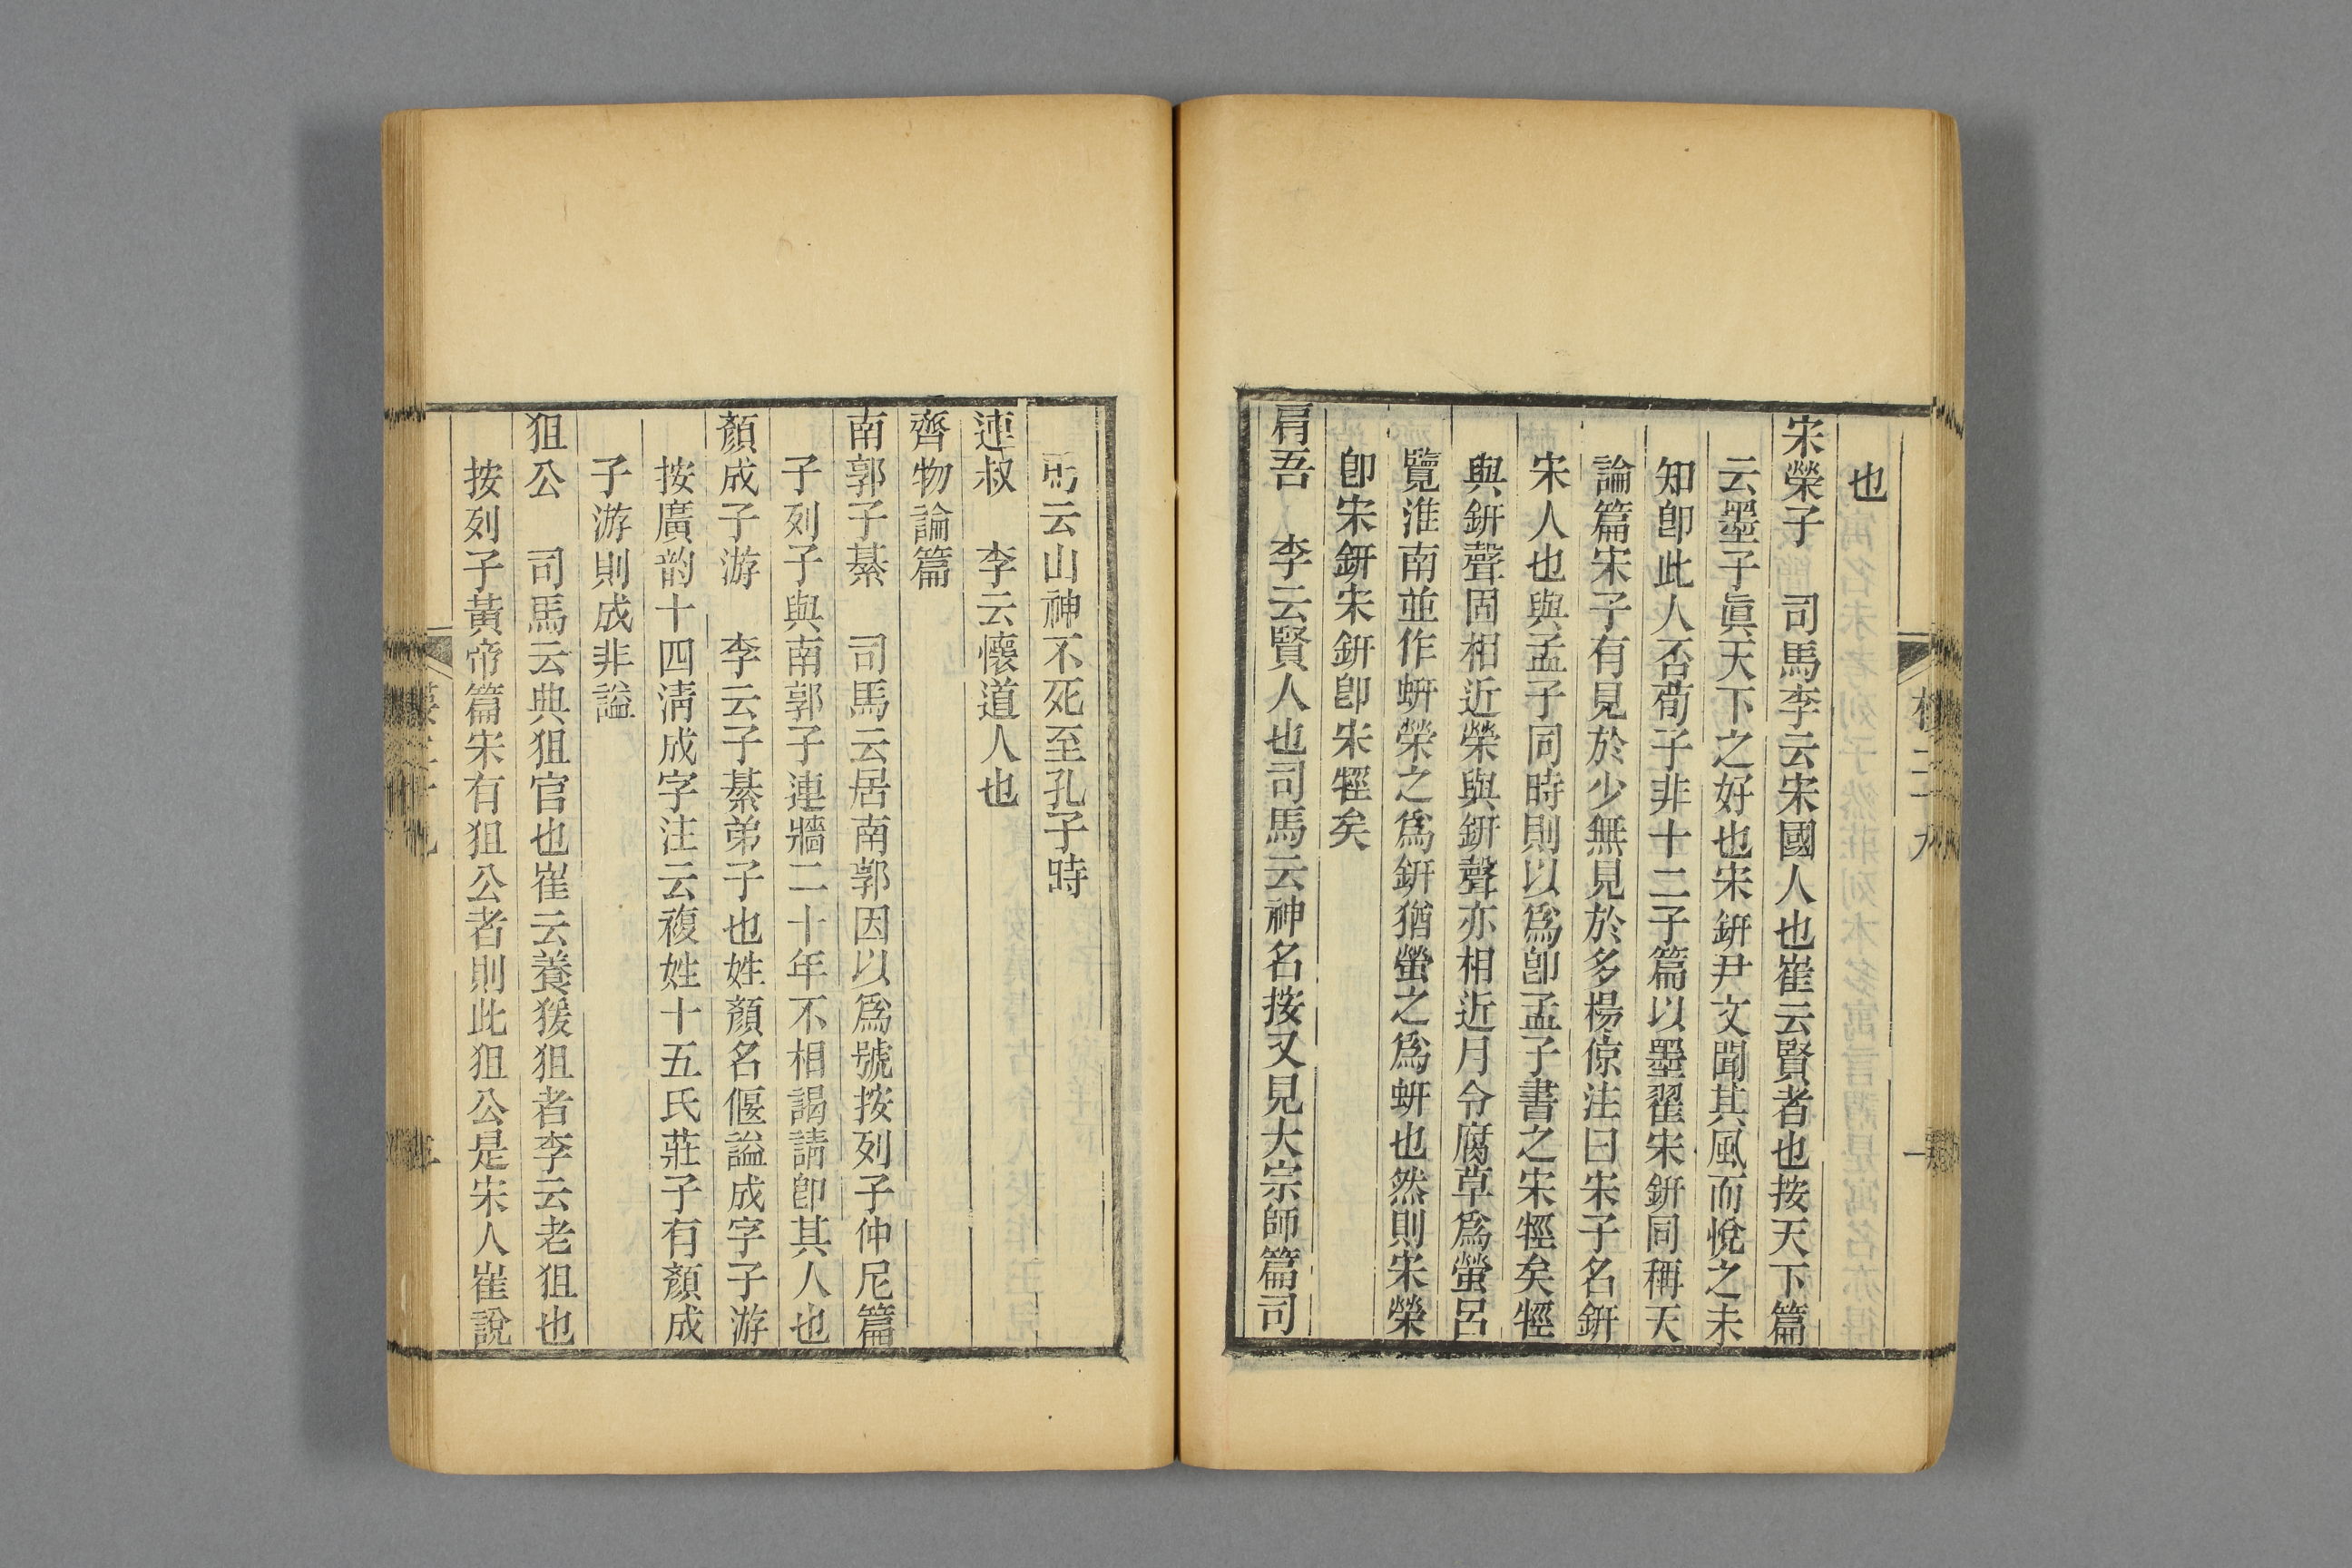 也
宋榮子　司馬李云宋國人也崔云賢者也按天下篇
云墨子眞天下之好也宋鈃尹文聞其風而悅之未
知卽此人否荀子非十二子篇以墨翟宋鈃同稱天
論篇宋子有見於少無見於多楊倞注曰宋子名鈃
宋人也與孟子同時則以爲卽孟子書之宋牼矣牼
與鈃聲固相近榮與鈃聲亦相近月令腐草爲螢呂
覽淮南並作蚈榮之爲鈃猶螢之爲蚈也然則宋榮
卽宋鈃宋鈃卽宋牼矣
肩吾　李云賢人也司馬云神名按又見大宗師篇司
馬云山神不死至孔子時
連叔　李云懷道人也
齊物論篇
南郭子綦　司馬云居南郭因以爲號按列子仲尼篇
子列子與南郭子連牆二十年不相謁請卽其人也
顏成子游　李云子綦弟子也姓顏名偃謚成字子游
按廣韵十四清成字注云複姓十五氏莊子有顏成
子游則成非謚
狙公　司馬云典狙官也崔云養猨狙者李云老狙也
按列子黃帝篇宋有狙公者則此狙公是宋人崔說